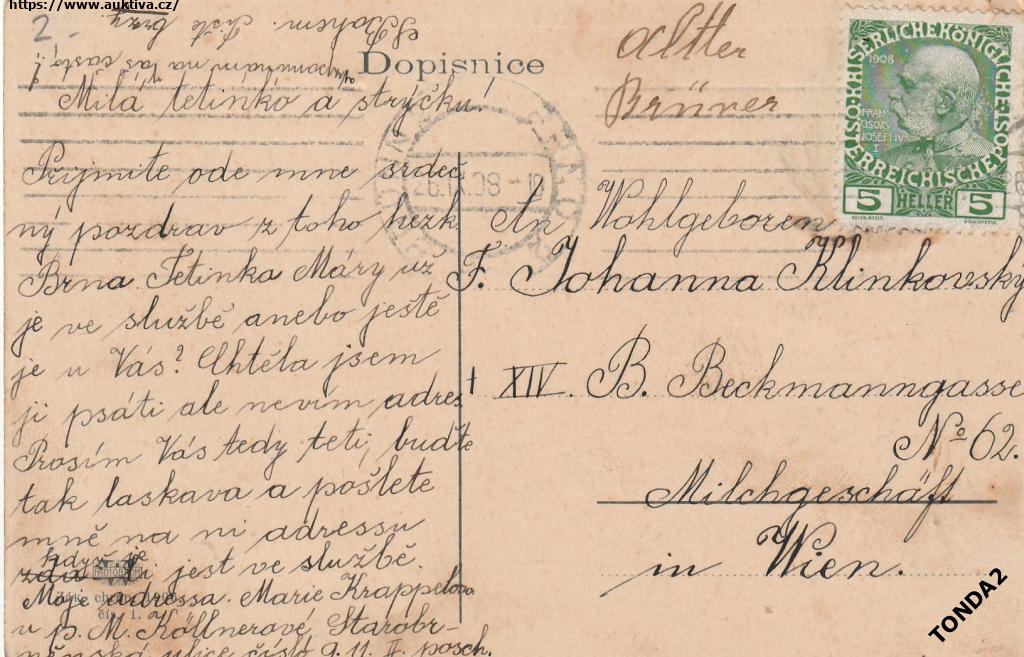 https://www.auktiva.cz/
2-
S Bohem. Piště brzy.
vzpomínám na Vás často!
Dopisnice
Altter
Brüner
Milá tetinko a strýčku!
Přijmite ode mne srdeč
ný pozdrav z toho hezk.
Brna. Tetinka Máry už
je ve službě anebo ještě
je u Vás? Chtěla jsem
ji psáti ale nevím adres
Prosím Vás tedy teti, buďte
tak laskava a pošlete
mně na ni adressu
když je
jest ve službě.
Moje adressa. Marie Krappelova
u p. M. Köllnerové, Starobr-
něnská ulice číslo 9. 11. II. posch.
BRÜNN
BRNO
26.IX.08-10
KAISERLICHE KÖNIGLICHE ÖSTERREICHISCHE POST
1908
FRAN
CISCVS
IOSEPHV
I
5 HELLER 5
An Wohlgeboren
F. Johanna Klinkovský
XIV. B. Beckmanngasse
No 62.
Milchgeschäft
in Wien.
TONDA2